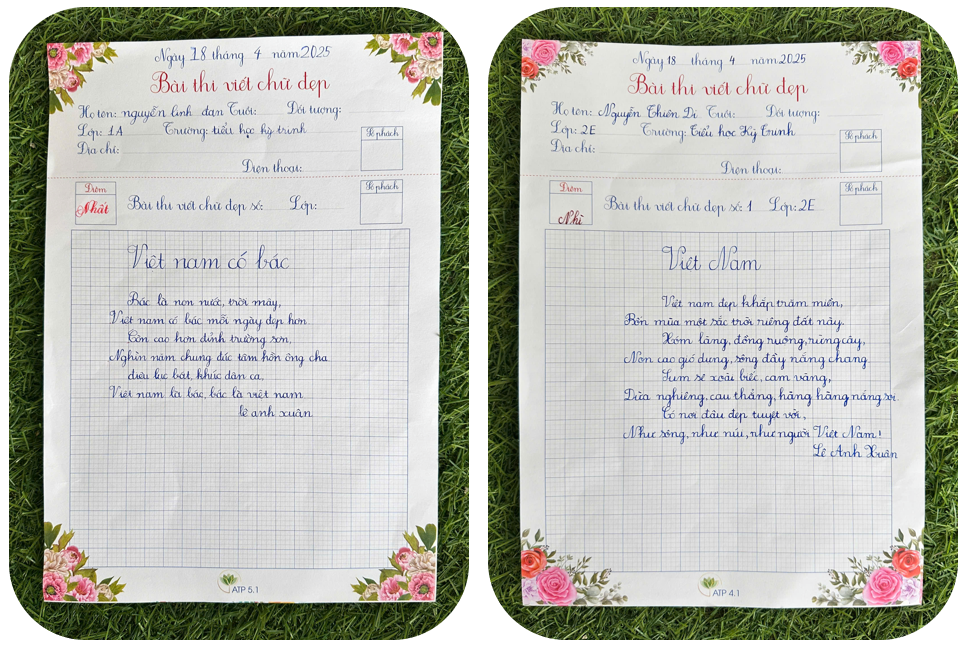 Ngày 18 tháng 4 năm 2025
Bài thi viết chữ đẹp
Họ tên: nguyễn linh đan Tuổi: Đối tượng:
Lớp: 1A Trường: tiểu học kỳ trinh
Địa chỉ:
Số phách
Điện thoại:
Điểm
Nhất
Bài thi viết chữ đẹp số: Lớp:
Số phách
Việt nam có bác
Bác là non nước, trời mây,
Việt nam có bác mỗi ngày đẹp hơn.
Còn cao hơn đỉnh trường sơn,
Nghìn năm chung đúc tâm hồn ông cha
điệu lục bát, khúc dân ca,
Việt nam là bác, bác là việt nam
lê anh xuân
ATP 5.1
Ngày 18 tháng 4 năm 2025
Bài thi viết chữ đẹp
Họ tên: Nguyễn Thiên Di Tuổi: Đối tượng:
Lớp: 2E Trường: Tiểu học Kỳ Trinh
Địa chỉ:
Số phách
Điện thoại:
Điểm
Nhì
Bài thi viết chữ đẹp số: 1 Lớp: 2E
Số phách
Việt Nam
Việt nam đẹp khắp trăm miền,
Bốn mùa một sắc trời riêng đất này.
Xóm làng, đồng ruộng, rừng cây,
Non cao gió dựng, sông đầy nắng chang.
Sum sê xoài biếc, cam vàng,
Dừa nghiêng, cau thẳng, hàng hàng nắng soi.
Có nơi đâu đẹp tuyệt vời,
Như sông, như núi, như người Việt Nam!
Lê Anh Xuân
ATP 4.1